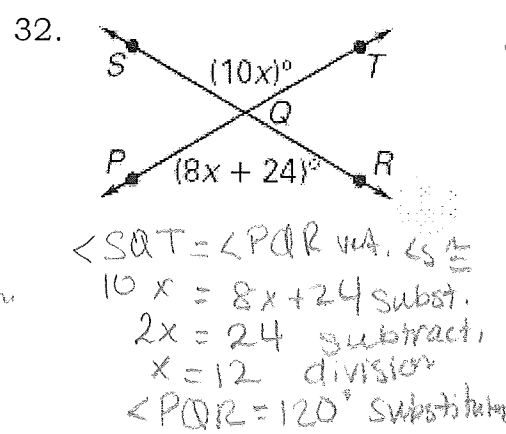 32.
S
(10x)°
T
Q
P
(8x + 24)°
R
<SQT = <PQR vert. <s ≅
10x = 8x + 24 subst.
2x = 24 subtract.
x = 12 division
<PQR = 120° substitution